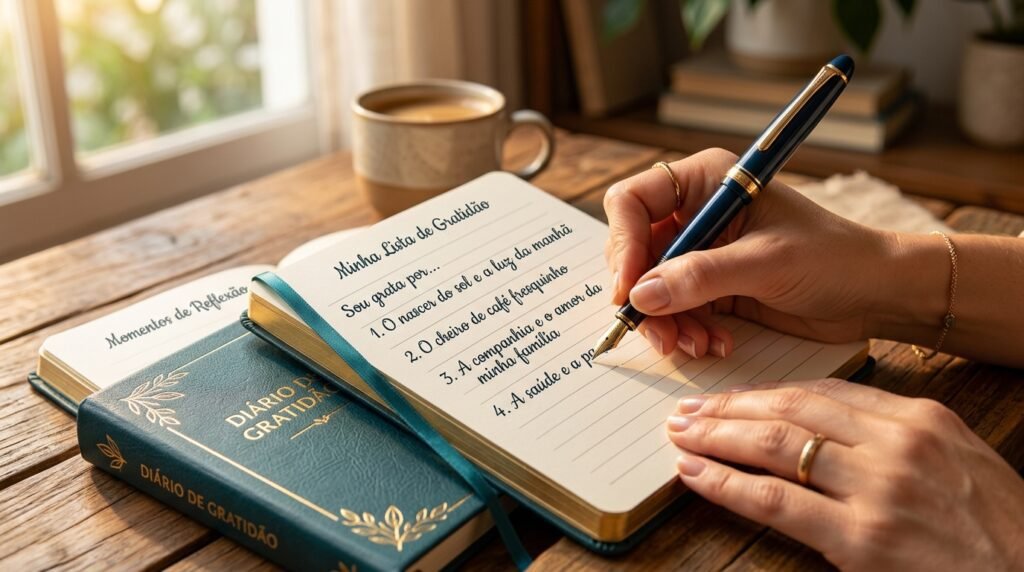 Minha Lista de Gratidão
Sou grata por...
1. O nascer do sol e a luz da manhã
2. O cheiro de café fresquinho
3. A companhia e o amor da
minha família
4. A saúde e a
Momentos de Reflexão
DIÁRIO DE
GRATIDÃO
DIÁRIO DE GRATIDÃO